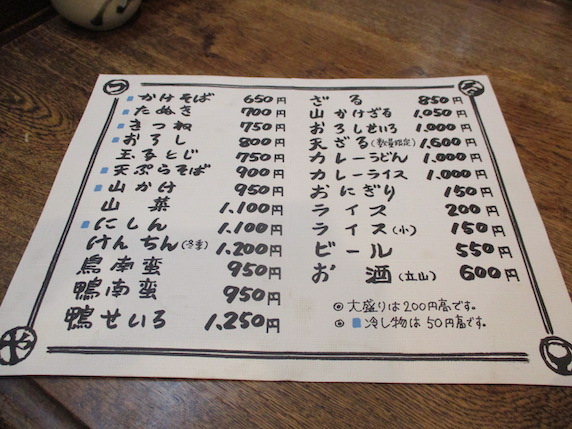 かけそば 650円
たぬき 700円
きつね 750円
おろし 800円
玉子とじ 750円
天ぷらそば 900円
山かけ 950円
山菜 1,100円
にしん 1,100円
けんちん(冬季) 1,200円
鳥南蛮 950円
鴨南蛮 950円
鴨せいろ 1,250円
ざる 850円
山かけざる 1,050円
おろしせいろ 1,000円
天ざる(数量限定) 1,600円
カレーうどん 1,000円
カレーライス 1,000円
おにぎり 150円
ライス 200円
ライス(小) 150円
ビール 550円
お酒(立山) 600円
◎大盛りは200円高です。
◎冷し物は50円高です。